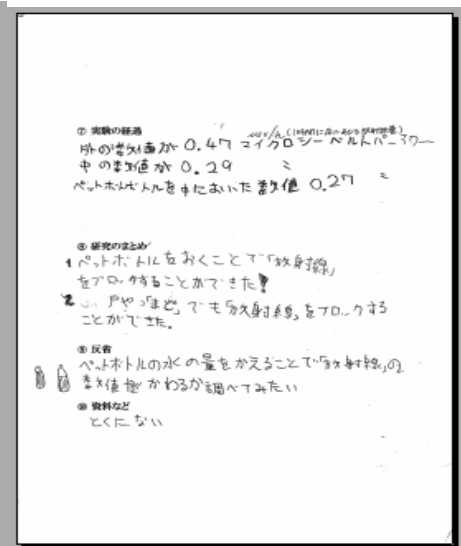 ⑦ 実験の経過
外の数値が 0.47 マイクロシーベルトパーアワー
中の数値が 0.29 〃
ペットボトルを中においた数値 0.27 〃
⑧ 研究のまとめ
1 ペットボトルをおくことで「放射線」
をブロックすることができた!
2 戸や「まど」でも「放射線」をブロックする
ことができた。
⑨ 反省
ペットボトルの水の量をかえることで「放射線」の
数値がかわるか調べてみたい
⑩ 資料など
とくにない